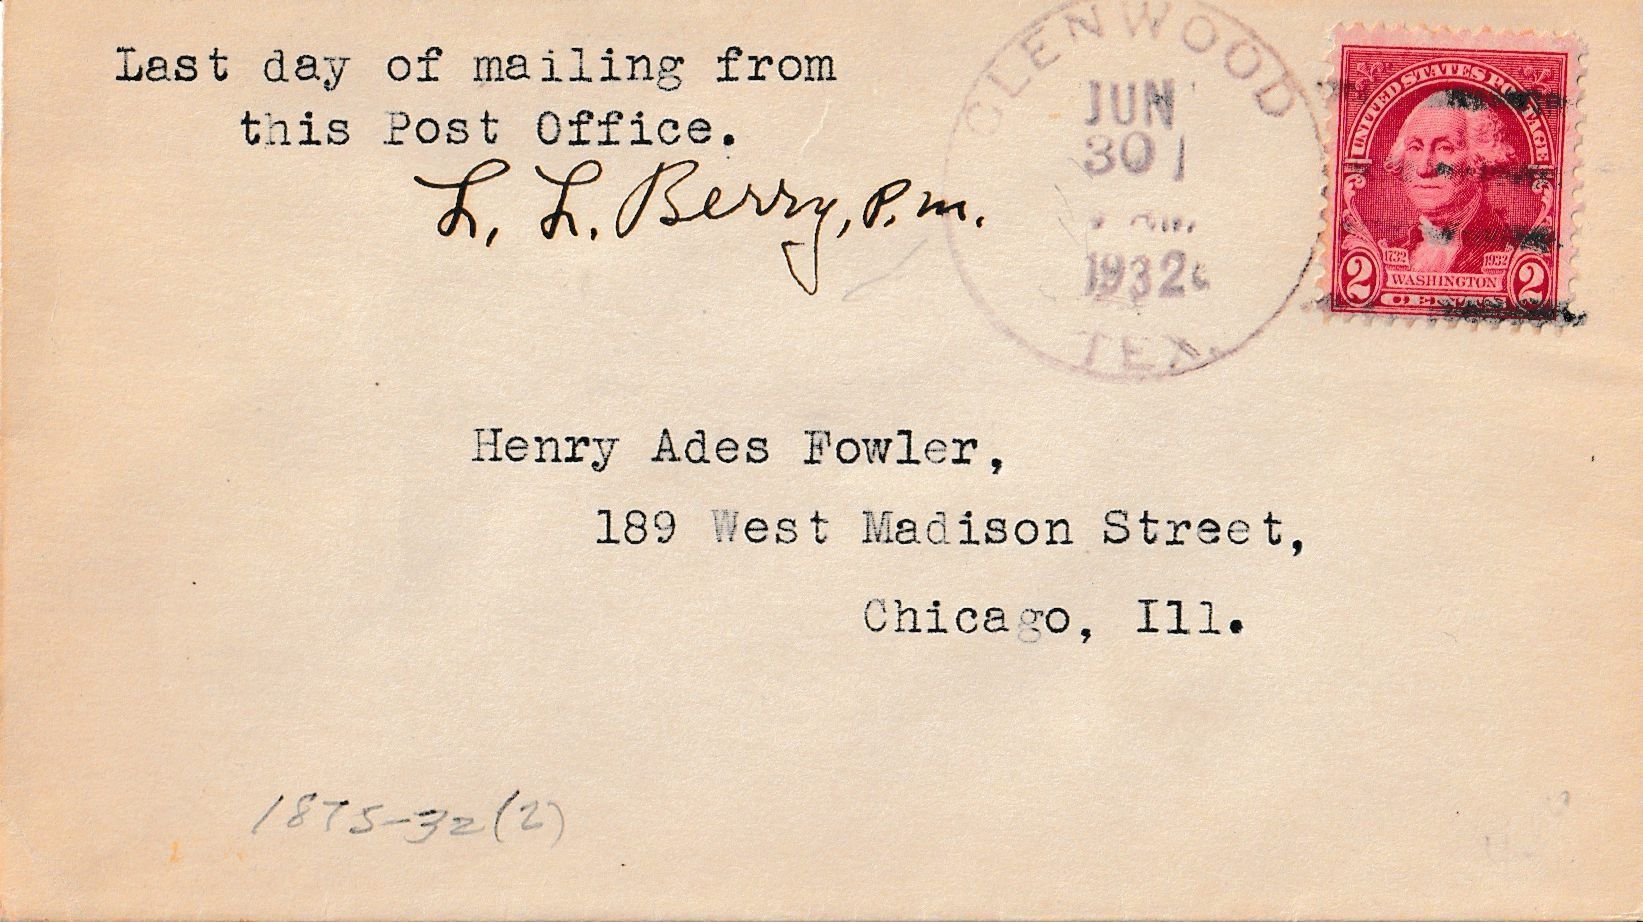 Last day of mailing from
this Post Office.
L. L. Berry, P.M.
GLENWOOD
JUN
30
1932
TEX.
UNITED STATES POSTAGE
1732
1932
2
WASHINGTON
2
CENTS
Henry Ades Fowler,
189 West Madison Street,
Chicago, Ill.
1875-32 (2)